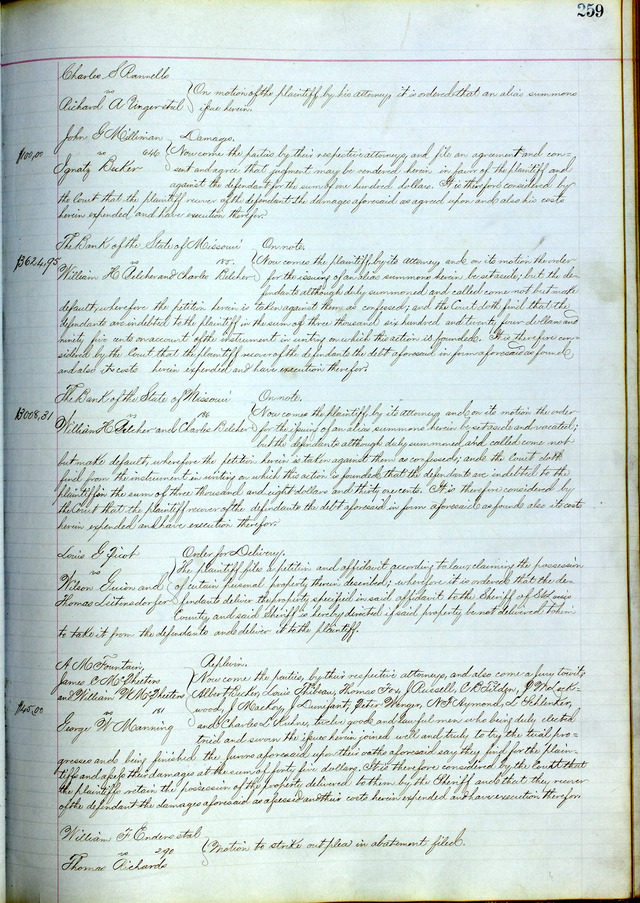 259
Charles S Rannells
vs
Richard A Unger et al
On motion of the plaintiff by his attorney, it is ordered that an alias summons
issue herein.
John G Milliman Damages.
$100,00
vs 646
Ignatz Buker
Now come the parties by their respective attorneys, and file an agreement and con-
sent and agree that judgment may be rendered herein in favor of the plaintiff and
against the defendant for the sum of one hundred dollars. It is therefore considered by
the Court that the plaintiff recover of the defendant the damages aforesaid as agreed upon and also his costs
herein expended and have execution therefor.
The Bank of the State of Missouri On note.
$3624,95
vs 185
William H Belcher and Charles Belcher
Now comes the plaintiff by its attorney and on its motion the order
for the issuing of an alias summons herein be set aside; but the de-
fendants although duly summoned and called come not but make
default, wherefore the petition herein is taken against them as confessed; and the Court doth find that the
defendants are indebted to the plaintiff in the sum of three thousand six hundred and twenty four dollars and
ninety five cents on account of the instrument in writing on which this action is founded. It is therefore con-
sidered by the Court that the plaintiff recover of the defendants the debt aforesaid in form aforesaid as found
and also its costs herein expended and have execution therefor.
The Bank of the State of Missouri On note.
$3008,31
vs 186
William H Belcher and Charles Belcher
Now comes the plaintiff by its attorney and on its motion the order
for the issuing of an alias summons herein be set aside and vacated;
but the defendants although duly summoned and called come not
but make default, wherefore the petition herein is taken against them as confessed; and the Court doth
find from the instrument in writing on which this action is founded, that the defendants are indebted to the
plaintiff in the sum of three thousand and eight dollars and thirty one cents. It is therefore considered by
the Court that the plaintiff recover of the defendants the debt aforesaid in form aforesaid as found also its costs
herein expended and have execution therefor.
Louis G Picot Order for Delivery.
vs
Wilson Guion and
Thomas Lietensdorfer
The plaintiff files a petition and affidavit according to law, claiming the possession
of certain personal property therein described; wherefore it is ordered that the de-
fendants deliver the property specified in said affidavit to the Sheriff of St Louis
County, and said Sheriff is hereby directed if said property be not delivered to him
to take it from the defendants and deliver it to the plaintiff.
A. M Fountain, Replevin.
James C McPheeters
and William W McPheeters
$45,00
vs 181
George W Manning
Now come the parties, by their respective attorneys, and also come a jury to wit;
Albert Bucker, Louis Thibeau, Thomas Fox, J Russell, C R Tilden, J W Lock-
wood, J Mackey, J Lumfant, Peter Wenger, N F Hymond, L Schlenker,
and Charles L Kuhne, twelve good and lawful men who being duly elected
tried and sworn the issue herein joined well and truly to try the trial pro-
gresses and being finished the jurors aforesaid upon their oaths aforesaid say they find for the plain-
tiffs and assess their damages at the sum of forty five dollars. It is therefore considered by the Court that
the plaintiffs retain the possession of the property delivered to them by the Sheriff and that they recover
of the defendant the damages aforesaid as assessed and their costs herein expended and have execution therefor.
William F Enders et al
vs 290
Thomas Richards
Motion to strike out plea in abatement filed.